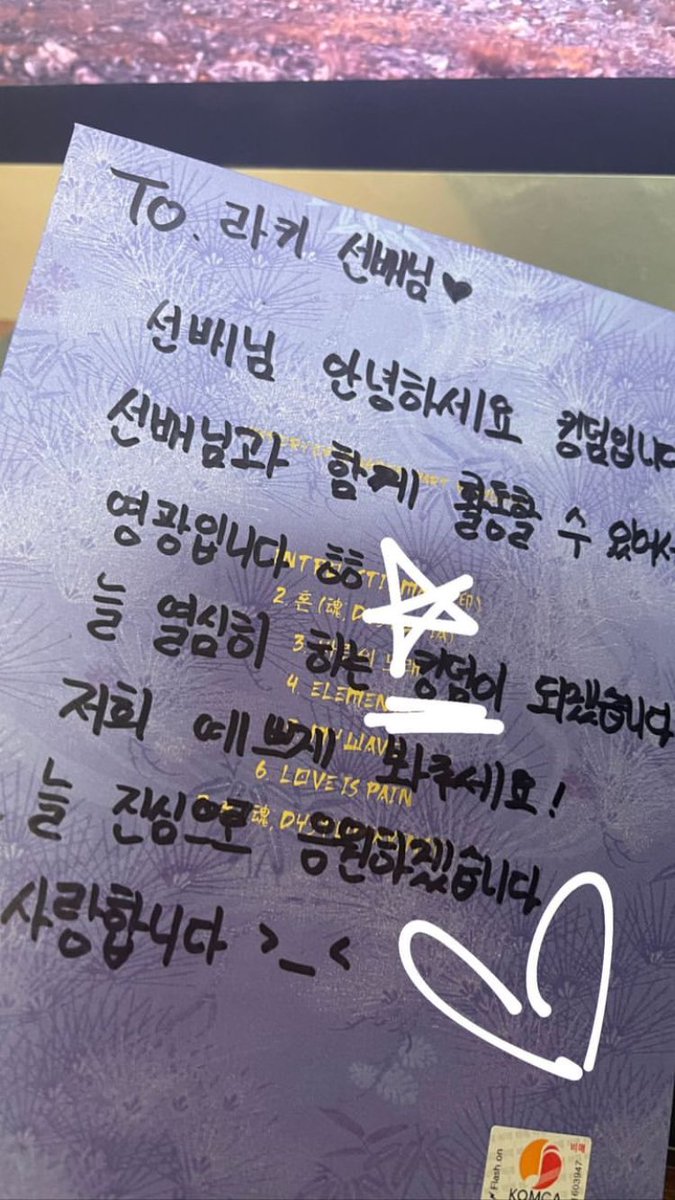 To. 라키 선배님♥
선배님 안녕하세요 킹덤입니다
선배님과 함께 활동할 수 있어서
영광입니다 ㅎㅎ
늘 열심히 하는 킹덤이 되겠습니다
저희 예쁘게 봐주세요!
늘 진심으로 응원하겠습니다
사랑합니다 >_<
2. 혼(魂,
3.
4. ELEMEN
WAV
6. LOVE IS PAIN
魂,
Flash on
KOMCA
비매
603947